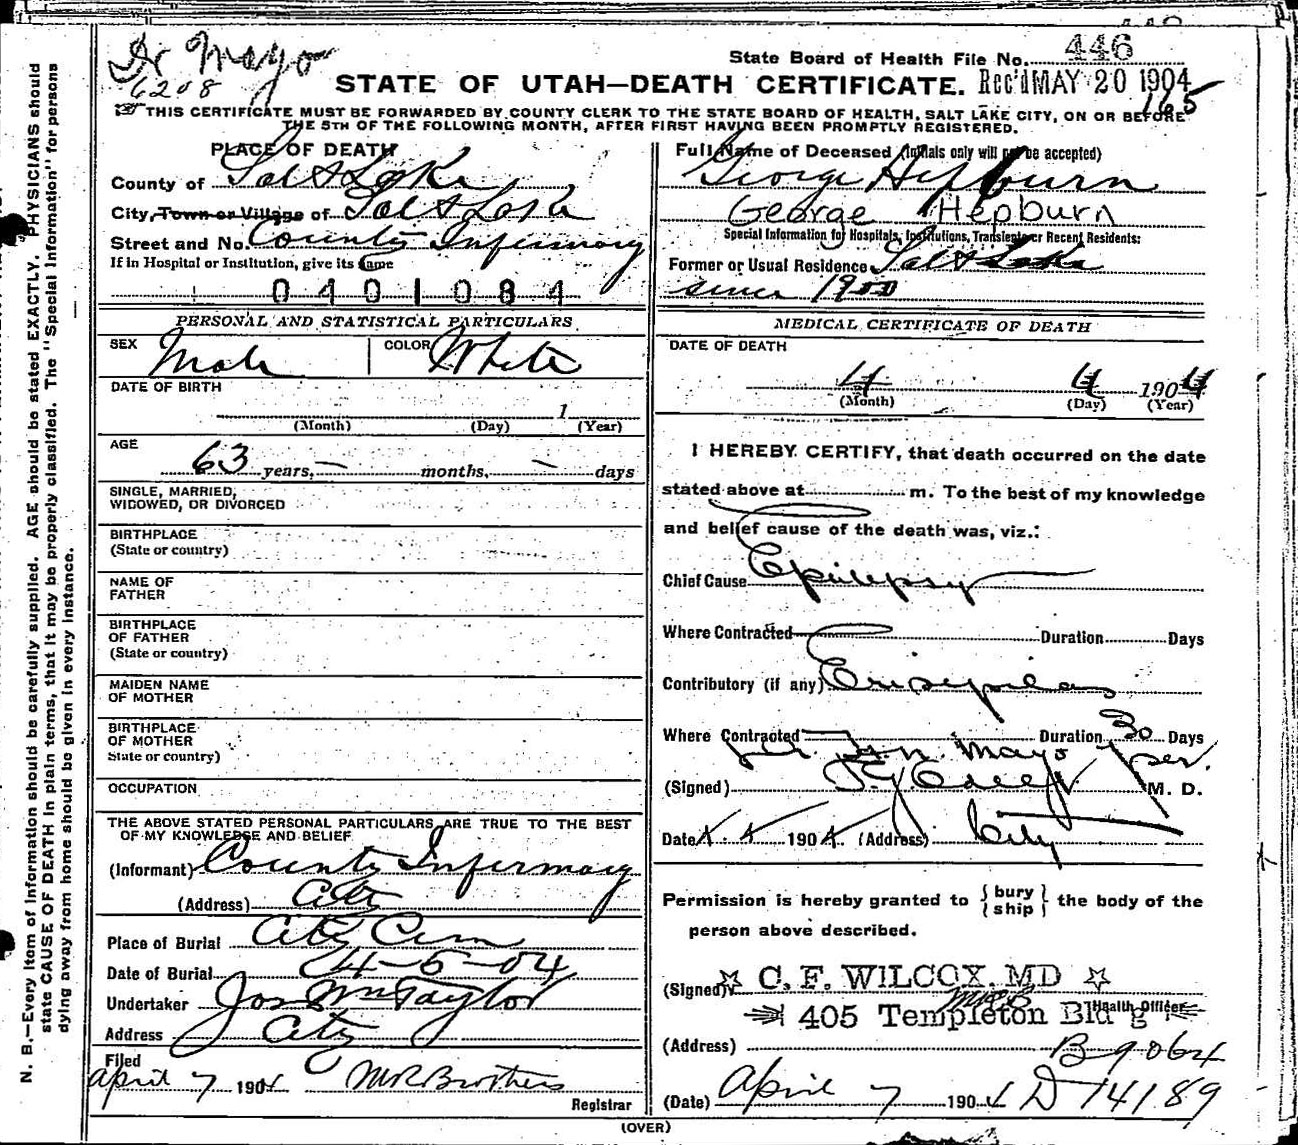 Dr Mayo
6208
State Board of Health File No. 446
STATE OF UTAH—DEATH CERTIFICATE. Rec'd MAY 20 1904
165
THIS CERTIFICATE MUST BE FORWARDED BY COUNTY CLERK TO THE STATE BOARD OF HEALTH, SALT LAKE CITY, ON OR BEFORE
THE 5TH OF THE FOLLOWING MONTH, AFTER FIRST HAVING BEEN PROMPTLY REGISTERED.
PLACE OF DEATH
County of Salt Lake
City, Town or Village of Salt Lake
Street and No. County Infirmary
If in Hospital or Institution, give its name
0401084
PERSONAL AND STATISTICAL PARTICULARS
SEX Male COLOR White
DATE OF BIRTH
1
(Month) (Day) (Year)
AGE
63 years, — months, — days
SINGLE, MARRIED,
WIDOWED, OR DIVORCED
BIRTHPLACE
(State or country)
NAME OF
FATHER
BIRTHPLACE
OF FATHER
(State or country)
MAIDEN NAME
OF MOTHER
BIRTHPLACE
OF MOTHER
State or country)
OCCUPATION
THE ABOVE STATED PERSONAL PARTICULARS ARE TRUE TO THE BEST
OF MY KNOWLEDGE AND BELIEF
(Informant) County Infermary
(Address) City
Place of Burial City Cem
Date of Burial 4-6-04
Undertaker Jos Wm Taylor
Address City
Filed
April 7 1904 M R Brothers
Registrar
Full Name of Deceased (Initials only will not be accepted)
George Hepburn
George Hepburn
Special Information for Hospitals, Institutions, Transients or Recent Residents:
Former or Usual Residence Salt Lake
since 1900
MEDICAL CERTIFICATE OF DEATH
DATE OF DEATH
4 4 1904
(Month) (Day) (Year)
I HEREBY CERTIFY, that death occurred on the date
stated above at m. To the best of my knowledge
and belief cause of the death was, viz.:
Chief Cause Epilepsy
Where Contracted Duration Days
Contributory (if any) Erisypelas
Where Contracted Duration 30 Days
Mayo per.
(Signed) M. D.
Date 4 1904 (Address) City
Permission is hereby granted to { bury ship } the body of the
person above described.
(Signed) C. F. WILCOX, MD
405 Templeton Bld'g Health Officer
(Address) B 9064
(Date) April 7 1904 D 14189
(OVER)
N. B.—Every item of information should be carefully supplied. AGE should be stated EXACTLY. PHYSICIANS should
state CAUSE OF DEATH in plain terms, that it may be properly classified. The "Special Information" for persons
dying away from home should be given in every instance.